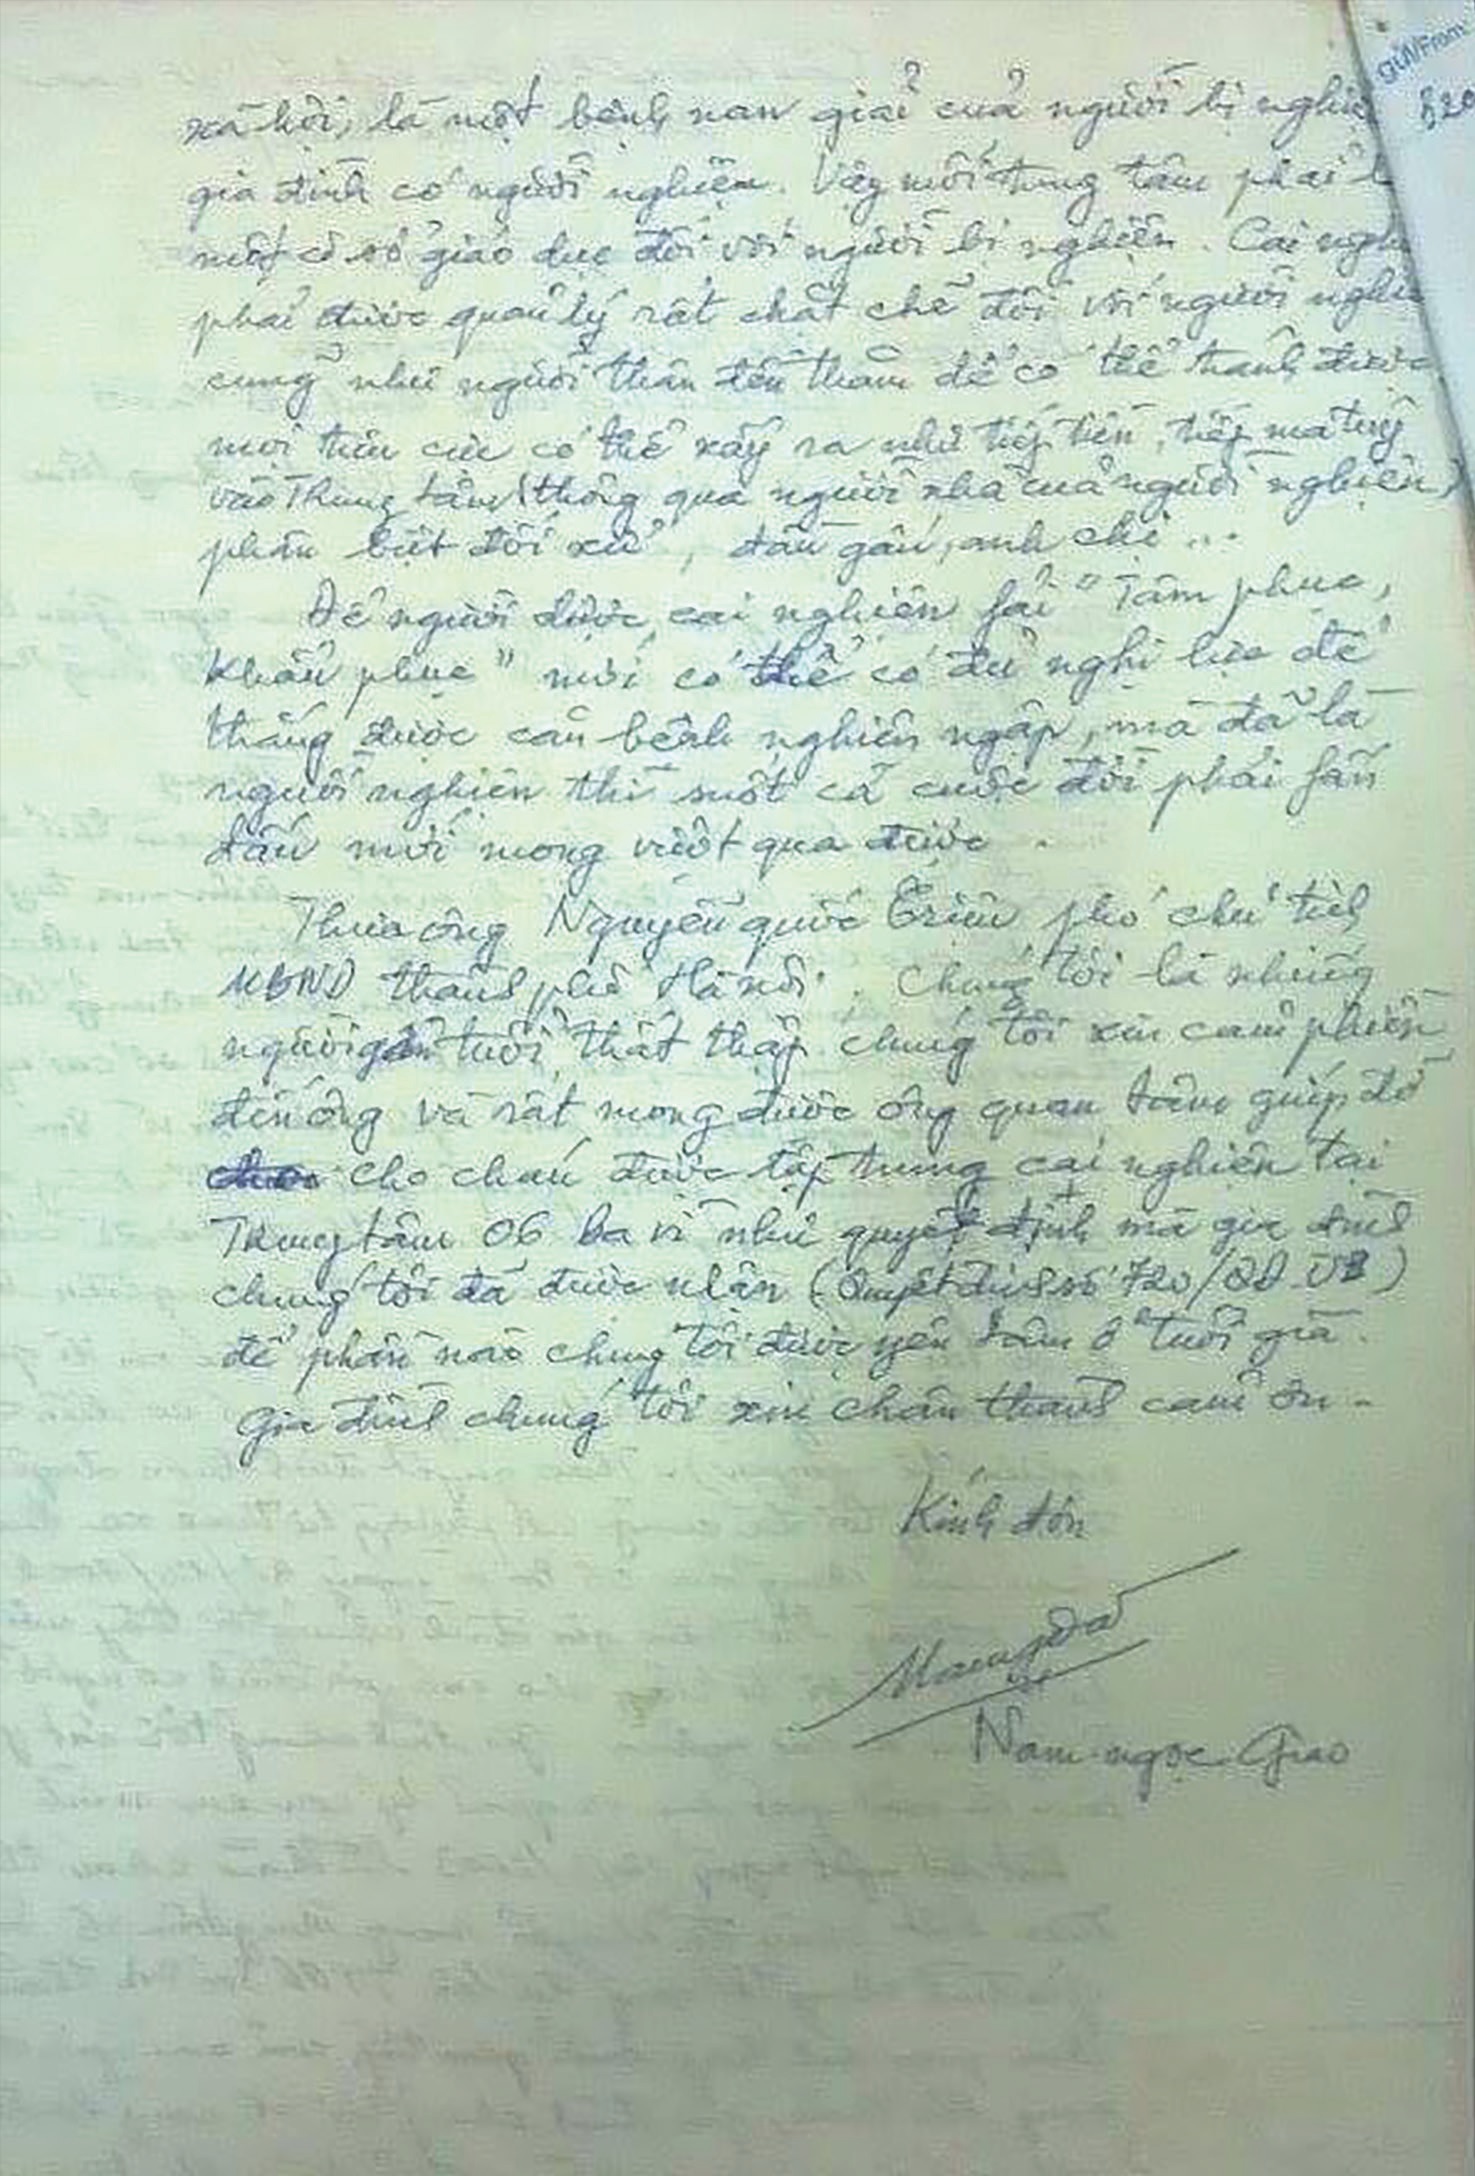 Gửi/From:
xã hội, là một bệnh nan giải của người bị nghiệ
gia đình có người nghiện. Vậy mỗi trung tâm phải l
một cơ sở giáo dục đối với người bị nghiện. Cai nghi
phải được quản lý rất chặt chẽ đối với người nghi
cũng như người thân đến thăm để có thể tránh được
mọi tiêu cực có thể xảy ra như tiếp tiền, tiếp ma túy
vào Trung tâm (thông qua người nhà của người nghiện)
phân biệt đối xử, đầu gấu, anh chị ...
Để người được cai nghiện fải "Tâm phục,
Khẩu phục" mới có thể có đủ nghị lực để
thắng được căn bệnh nghiện ngập, mà đã là
người nghiện thì suốt cả cuộc đời phải fấn
đấu mới mong vượt qua được.
Thưa ông Nguyễn quốc Triệu phó chủ tịch
UBND thành phố Hà nội. Chúng tôi là những
người gần tuổi thất thập. chúng tôi xin cảm phiền
đến ông và rất mong được ông quan tâm giúp đỡ
cho cháu được tập trung cai nghiện tại
Trung tâm 06 ba vì như quyết định mà gia đình
chúng tôi đã được nhận (Quyết định số 720/QĐ-UB)
để phần nào chúng tôi được yên tâm ở tuổi già.
Gia đình chúng tôi xin chân thành cảm ơn -
Kính đơn
Nam ngọc Giao